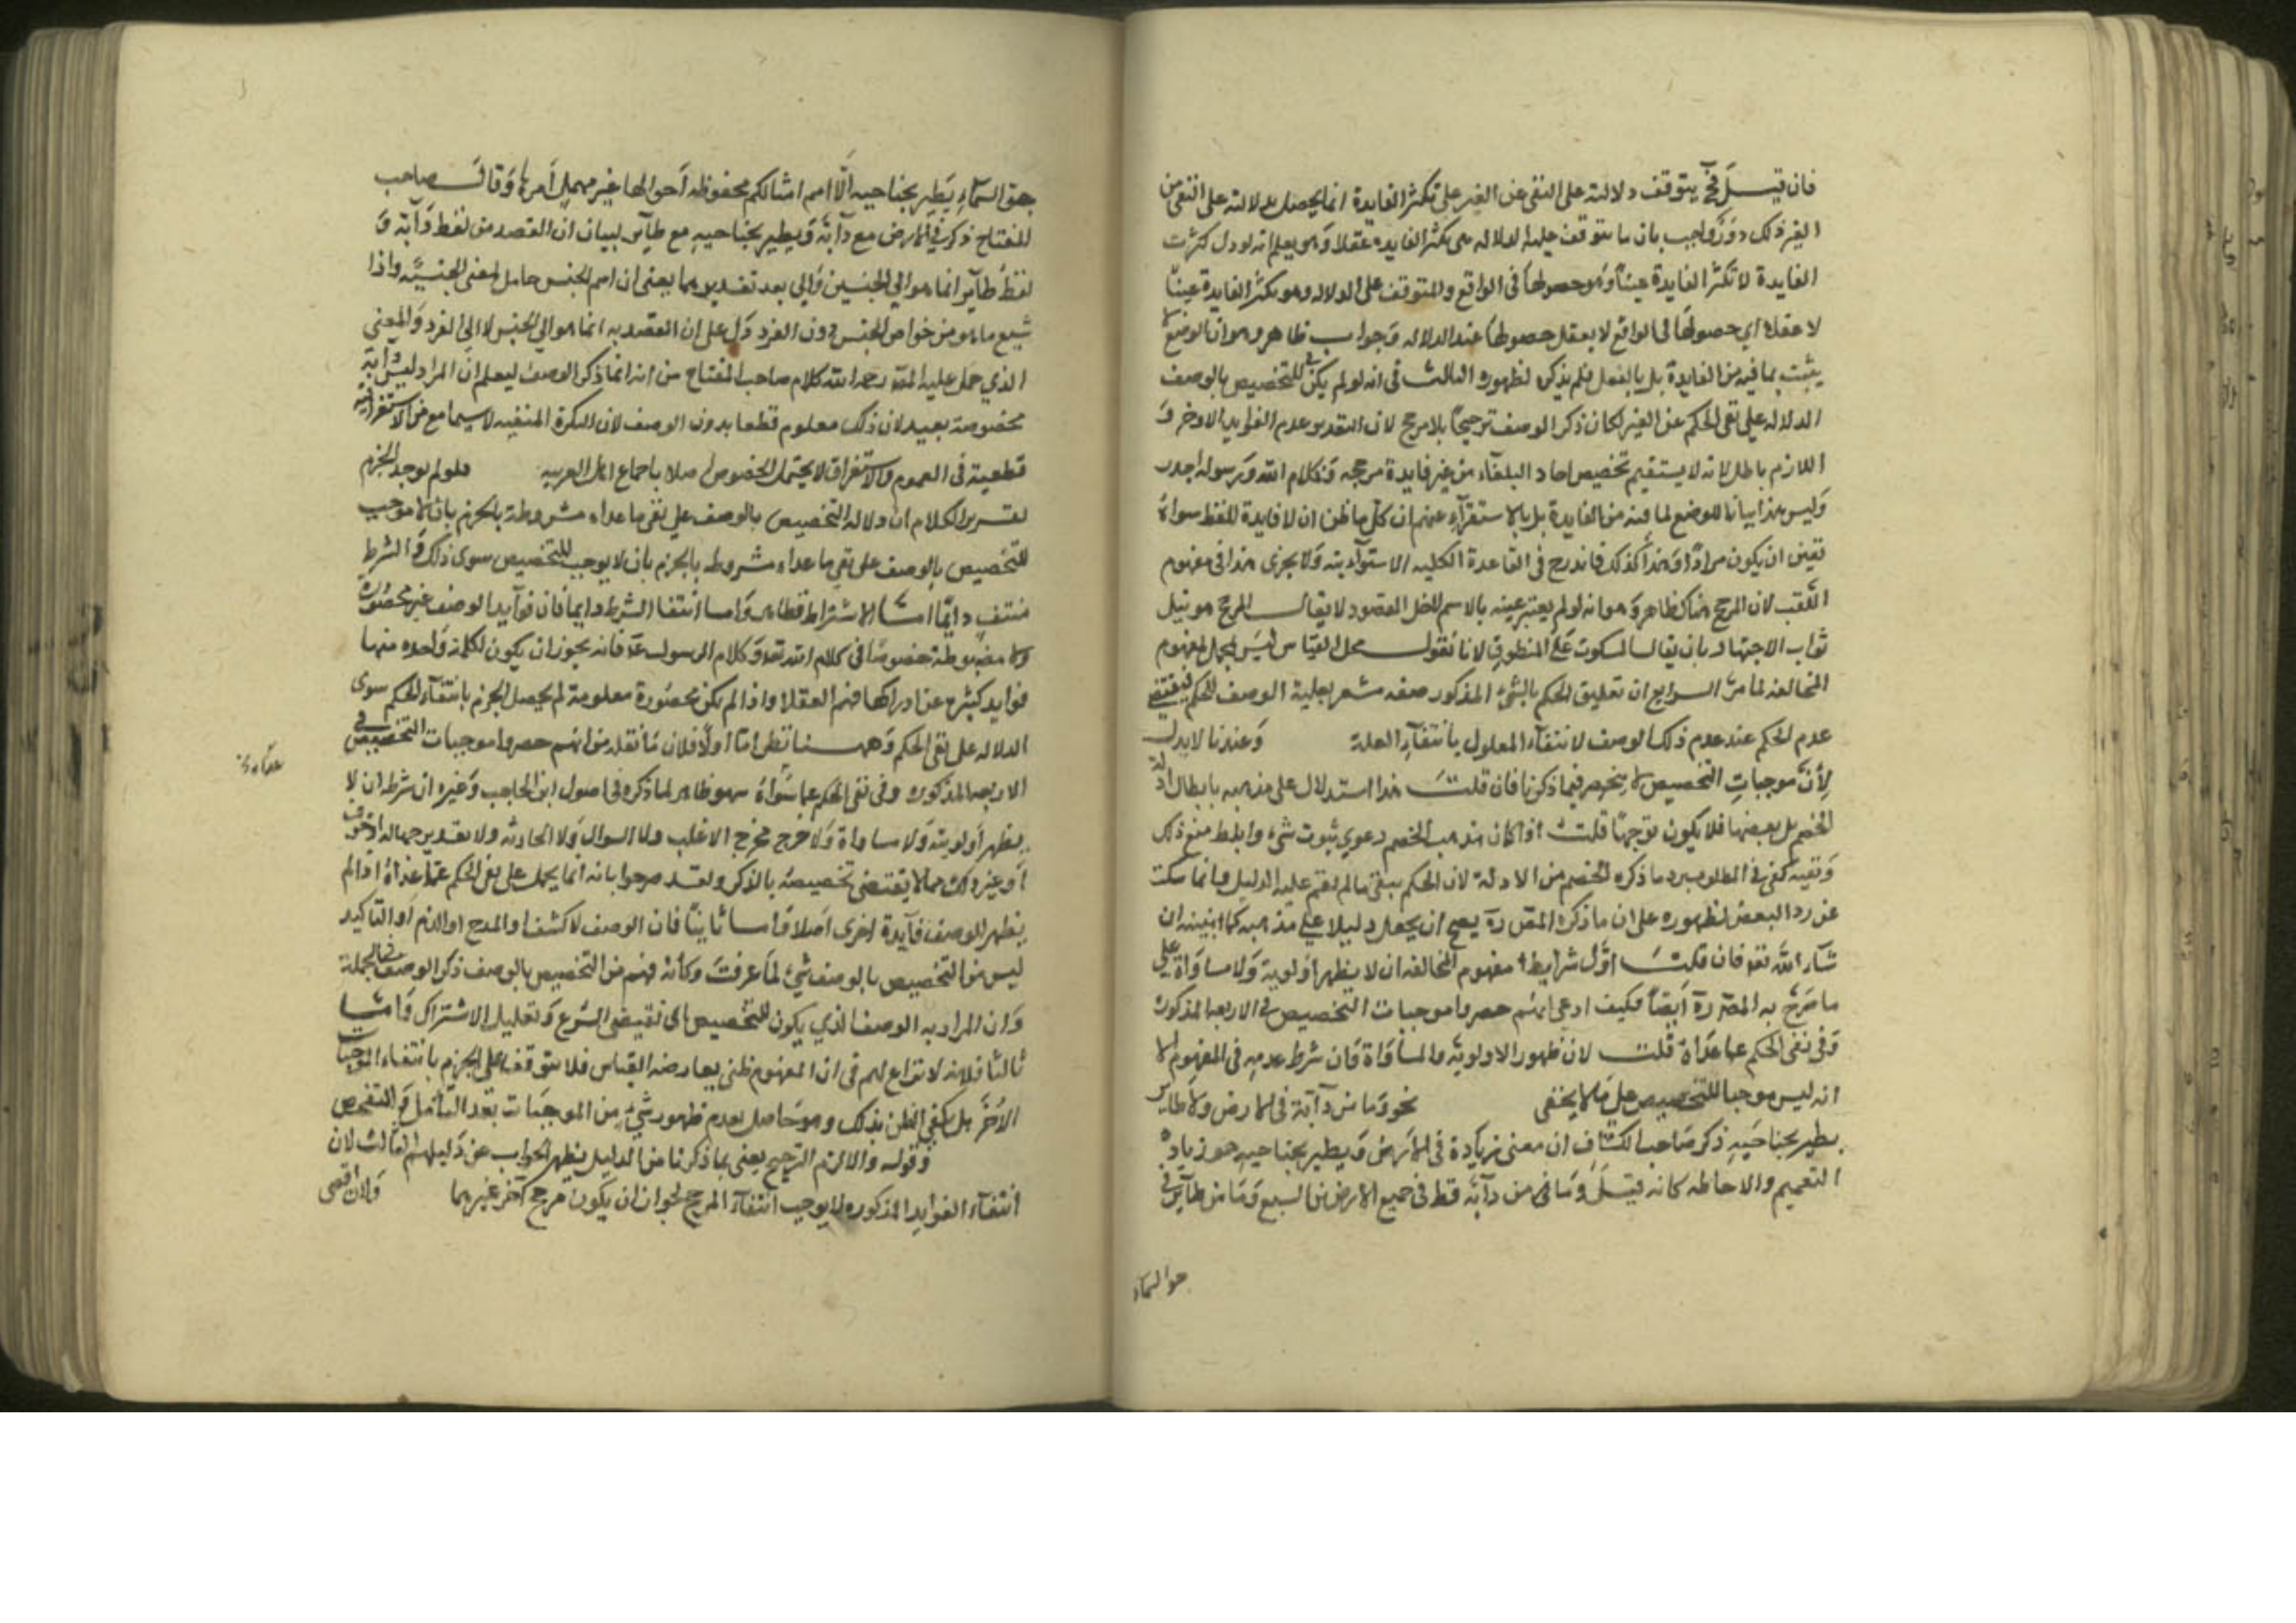 فان قيل فح يتوقف دلالته على النفى عن الغير على تكثر الفايدة انما يحصل بدلالته على النفى من
الغير ذلك دور واجيب بان ما يتوقف عليه الدلاله هى تكثر الفايده عقلا وهو يعلم انه لو دل كثرت
الفايدة لا تكثر الفايدة عينًا وهو حصولها فى الواقع والمتوقف على الدلاله وهو تكثر الفايدة عينًا
لا عقلا اي حصولها فى الواقع لا بعقل حصولها عند الدلاله وجواب ظاهر وهو ان الوضع لا
يثبت بما فيه من الفايدة بل بالنقل فلم يذكر لظهوره الثالث فى انه لو لم يكن فى للتخصيص بالوصف
الدلاله على نفى الحكم عن الغير لكان ذكر الوصف ترجيحًا بلا مرجح لان التقدير عدم الفوايد الاخر و
اللازم باطل لانه لا يستقيم تخصيص احاد البلغاء من غير فايدة مرجحه فكلام الله ورسوله اجدر
وليس هذا بيانا للوضع لما فيه من الفايدة بل بالاستقرآء عنهم ان كل ما ظن ان لا فايدة للفظ سواه
تعين ان يكون مرادًا وهذا كذلك فاندرج فى القاعدة الكليه الاستقرآئيه ولا يجرى هذا فى مفهوم
اللقب لان المرجح هناك ظاهر وهو انه لو لم يعبر عنه بالاسم لاختل المقصود لا يقال المرجح هو نيل
ثواب الاجتهاد بان يقاس المسكوت على المنطوق لانا نقول محل القياس ليس محل لمفهوم
المخالفه لما مر الرابع ان تعليق الحكم بالشئ المذكور صفه مشعر بعلية الوصف للحكم فيقتضى
عدم الحكم عند عدم ذلك الوصف لانتفاء المعلول بانتفآء العلة وعندنا لا يدل
لأن موجبات التخصيص لا ينحصر فيما ذكرنا فان قلت هذا استدلال على مذهبه بابطال ادلة
الخصم بل بعضها فلا يكون موجهًا قلت اذا كان مذهب الخصم دعوي ثبوت شئ وابلط منع ذلك
ونفيه كفى فى المطلوب رد ما ذكره الخصم من الادلة لان الحكم ينفى ما لم يقم عليه الدليل وانما سكت
عن رد البعض لظهوره على ان ما ذكره المص ره يصح ان يجعل دليلا على مذهبه كما ابينه ان
شآء الله تعا فان قلت اول شرايط مفهوم المخالفه ان لا يظهر اولوية ولا مساواة على
ما صرح به المص ره ايضًا فكيف ادعى انهم حصروا موجبات التخصيص فى الاربعه المذكورة
وفى نفى الحكم عما عداه قلت لان ظهور الاولوية والمساواة وان شرط عدمه فى المفهوم الا
انه ليس موجبا للتخصيص على ما لا يخفى نحو وما من دآبة فى الارض ولا طاير
يطير بجناحيه ذكر صاحب الكشاف ان معنى زيادة فى الارض ويطير بجناحيه هو زيادة
التعميم والاحاطه كانه قيل وما من دآبة قط فى جميع الارضين السبع وما من طآير فى
جو السماء
جو السمآء يطير بجناحيه الا امم امثالكم محفوظه احوالها غير مهمل امرها وقال صاحب
المفتاح ذكر فى الارض مع دآبة ويطير بجناحيه مع طآير لبيان ان القصد من لفظ دآبة و
لفظ طآير انما هو الي الجنسين والي بعد تقديرهما يعنى ان اسم الجنس حامل لمعنى الجنسيّه واذا
شيع ما هو من خواص الجنس دون الفرد دل على ان القصد به انما هو الي الجنس لا الي الفرد والمعنى
الذي حمل عليه المص رحمه الله كلام صاحب المفتاح من انه انما ذكر الوصف ليعلم ان المراد ليس دابة
مخصوصة بعيد لان ذلك معلوم قطعا بدون الوصف لان النكرة المنفيه لا سيما مع من الاستغراقيه
قطعية فى العموم والاستغراق لا يحتمل الخصوص اصلا باجماع اهل العربيه فلو لم يوجد الجزم
تقرير الكلام ان دلاله التخصيص بالوصف على نفى ما عداه مشروطة بالجزم بان لا موجب
للتخصيص بالوصف على نفى ما عداه مشروطه بالجزم بان لا يوجب للتخصيص سوى ذلك والشرط
منتف دايمًا اما الاشتراط فظاهر واما انتفا الشرط دايما فان فوآيد الوصف غير محصورة
ولا مضبوطة خصوصًا فى كلام الله تعا وكلام الرسول عم فانه يجوز ان يكون لكلمة واحده منها
فوايد كثيرة عن ادراكها فهم العقلا واذا لم يكن محصورة معلومة لم يحصل الجزم بانتفآء الحكم سوى
الدلاله على نفى الحكم وههنا نظر اما اولًا فلان ما نقله من انهم حصروا موجبات التخصيص فى
الاربعه المذكوره وفى نفى الحكم عما سواه سهو ظاهر لما ذكره فى اصول ابن الحاجب وغيره ان شرطه ان لا
يظهر اولوية ولا مساواة ولا خرج مخرج الاغلب ولا السوال ولا لحادثه ولا تقدير جهاله او خوف
او غير ذلك مما لا يقتضى تخصيصه بالذكر ولقد صرحوا بانه انما يحمل على نفى الحكم عما عداه اذا لم
يظهر للوصف فآيدة اخرى اصلا واما ثانيًا فان الوصف لا كشف او المدح او الذم او التاكيد
ليس من التخصيص بالوصف شئ لما عرفت وكأنه فهم من التخصيص بالوصف ذكر الوصف فى الجملة
وان المراد به الوصف الذي يكون للتخصيص اى نقيض الشرع وتقليل الاشتراك واما
ثالثا فلانه لا نزاع لهم فى ان المفهوم ظنى يعارضه القياس فلا يتوقف على الجزم بانتفاء الموجبات
الاخر بل يكفى الظن بذلك وهو حاصل بعدم ظهور شئ من الموجبات بعد التأمل والتفحص
وقوله والا لزم الترجيح يعنى بما ذكرنا من الدليل يظهر الجواب عن دليلهم الثالث لان
انتفآء الفوايد المذكوره لا يوجب انتفآء المرجح لجواز ان يكون مرجح آخر غيرهما ولان اقصى